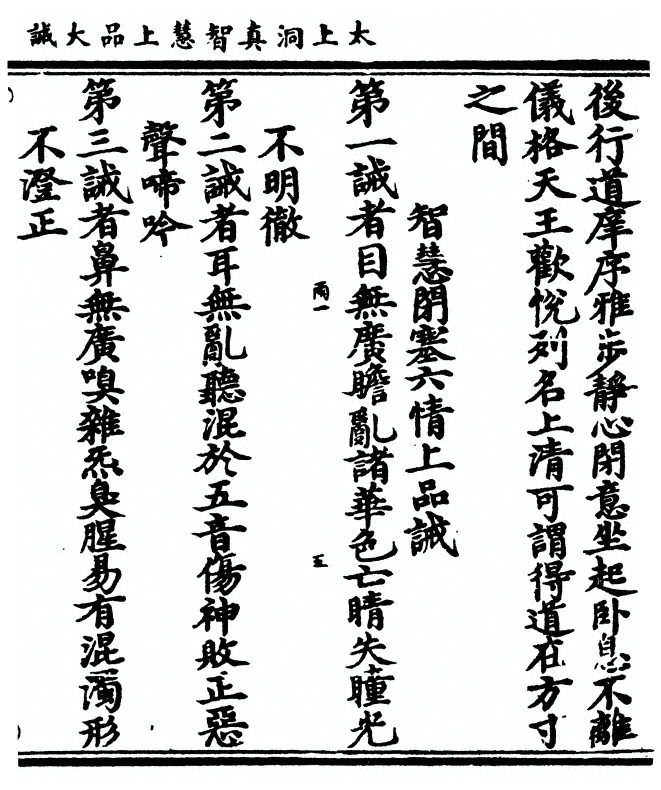 太上洞真智慧上品大誡
後行道庠序雅步靜心閉意坐起卧息不離
儀格天王歡悅列名上清可謂得道在方寸
之間
智慧閉塞六情上品誡
第一誡者目無廣瞻亂諸華色亡睛失瞳光
不明徹
雨一
五
第二誡者耳無亂聽混於五音傷神敗正惡
聲啼吟
第三誡者鼻無廣嗅雜炁臭腥易有混濁形
不澄正